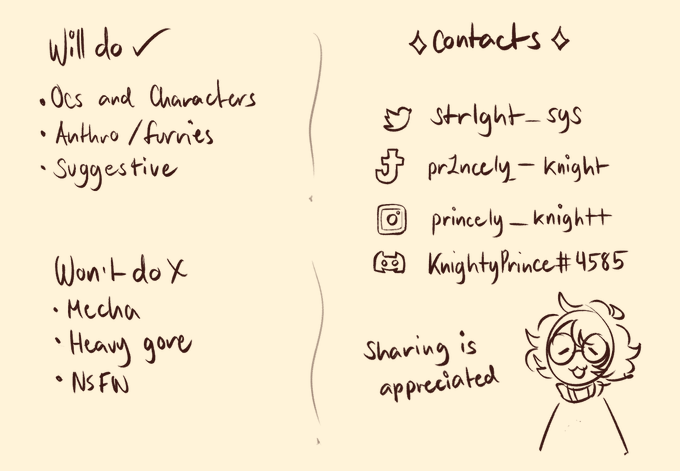 Will do ✓
• Ocs and Characters
• Anthro / furries
• Suggestive
Won't do X
• Mecha
• Heavy gore
• NSFW
✧ Contacts ✧
strlght_sys
pr1ncely_knight
princely_knightt
KnightyPrince#4585
Sharing is
appreciated